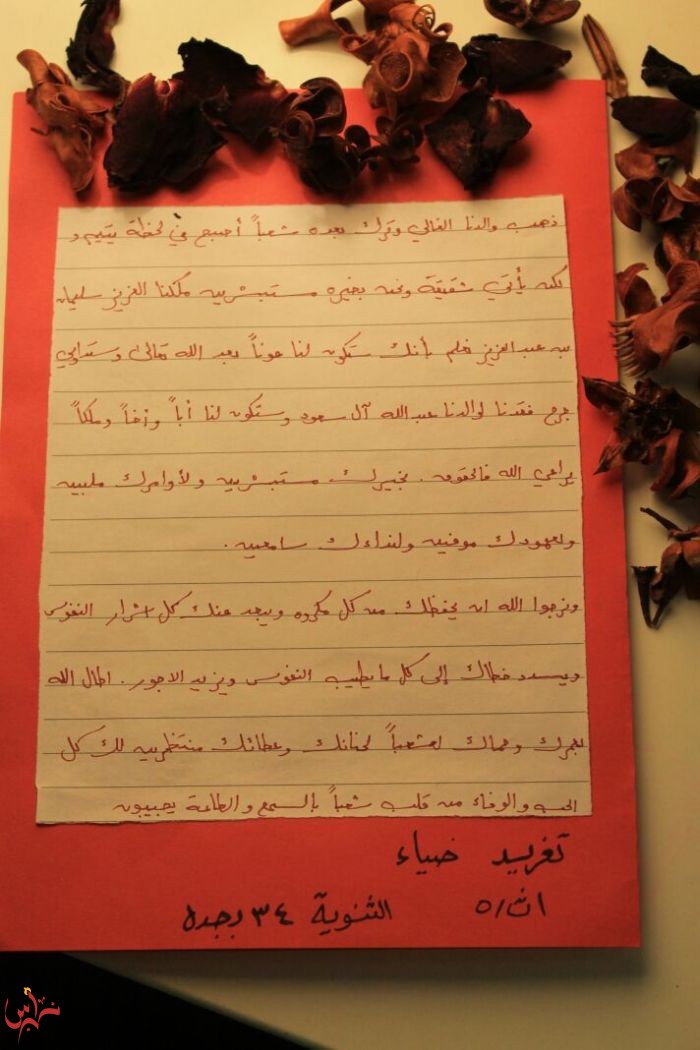 ذهب والدنا الغالي وترك بعده شعباً أصبح في لحظة يتيم و
لكن يأتي شقيقة ونحن بخيره مستبشرين ملكنا العزيز سلمان
بن عبدالعزيز فلم بأنك ستكون لنا عوناً بعد الله تعالى وستداوي
جرح فقدنا لوالدنا عبدالله آل سعود وستكون لنا أباً وأخاً وملكاً
يراعي الله فالحقوق . بخيرك مستبشرين ولأوامرك ملبين
ولعهودك موفين ولنداءك سامعين .
ونرجوا الله ان يحفظك من كل مكروه ويبعد عنك كل اشرار النفوس
ويسدد خطاك إلى كل مايطيب النفوس ويزيد الاجور . اطال الله
بعمرك وحماك لحنانك وعطائك منتظرين لك كل
الحب والوفاء من قلب شعباً بالسمع والطاعة يجيبون
تغريد ضياء
اث/٥ الثنوية ٣٤ بجدة
نبراس